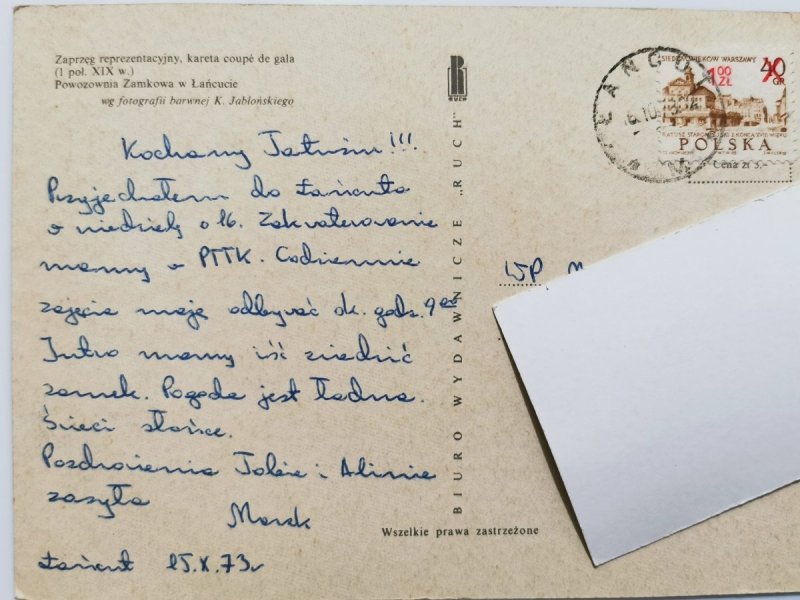 Zaprzęg reprezentacyjny, kareta coupé de gala
(1 poł. XIX w.)
Powozownia Zamkowa w Łańcucie
wg fotografii barwnej K. Jabłońskiego
RUCH
ŁAŃCUT
SIEDEM WIEKÓW WARSZAWY
1 00 ZŁ
40 GR
RATUSZ STAROMIEJSKI Z KOŃCA XVIII WIEKU
POLSKA
Cena zł 3,-
Kochany Tatusiu!!!
Przyjechałem do Łańcuta
w niedzielę o 16. Zakwaterowanie
mamy w PTTK. Codziennie
zajęcia mają odbywać ok. godz. 9 00
Jutro mamy iść zwiedzić
zamek. Pogoda jest ładna.
Świeci słońce.
Pozdrowienia Tobie i Alinie
zasyła
Marek
Łańcut 15.X.73r
BIURO WYDAWNICZE „RUCH"
WP
Wszelkie prawa zastrzeżone